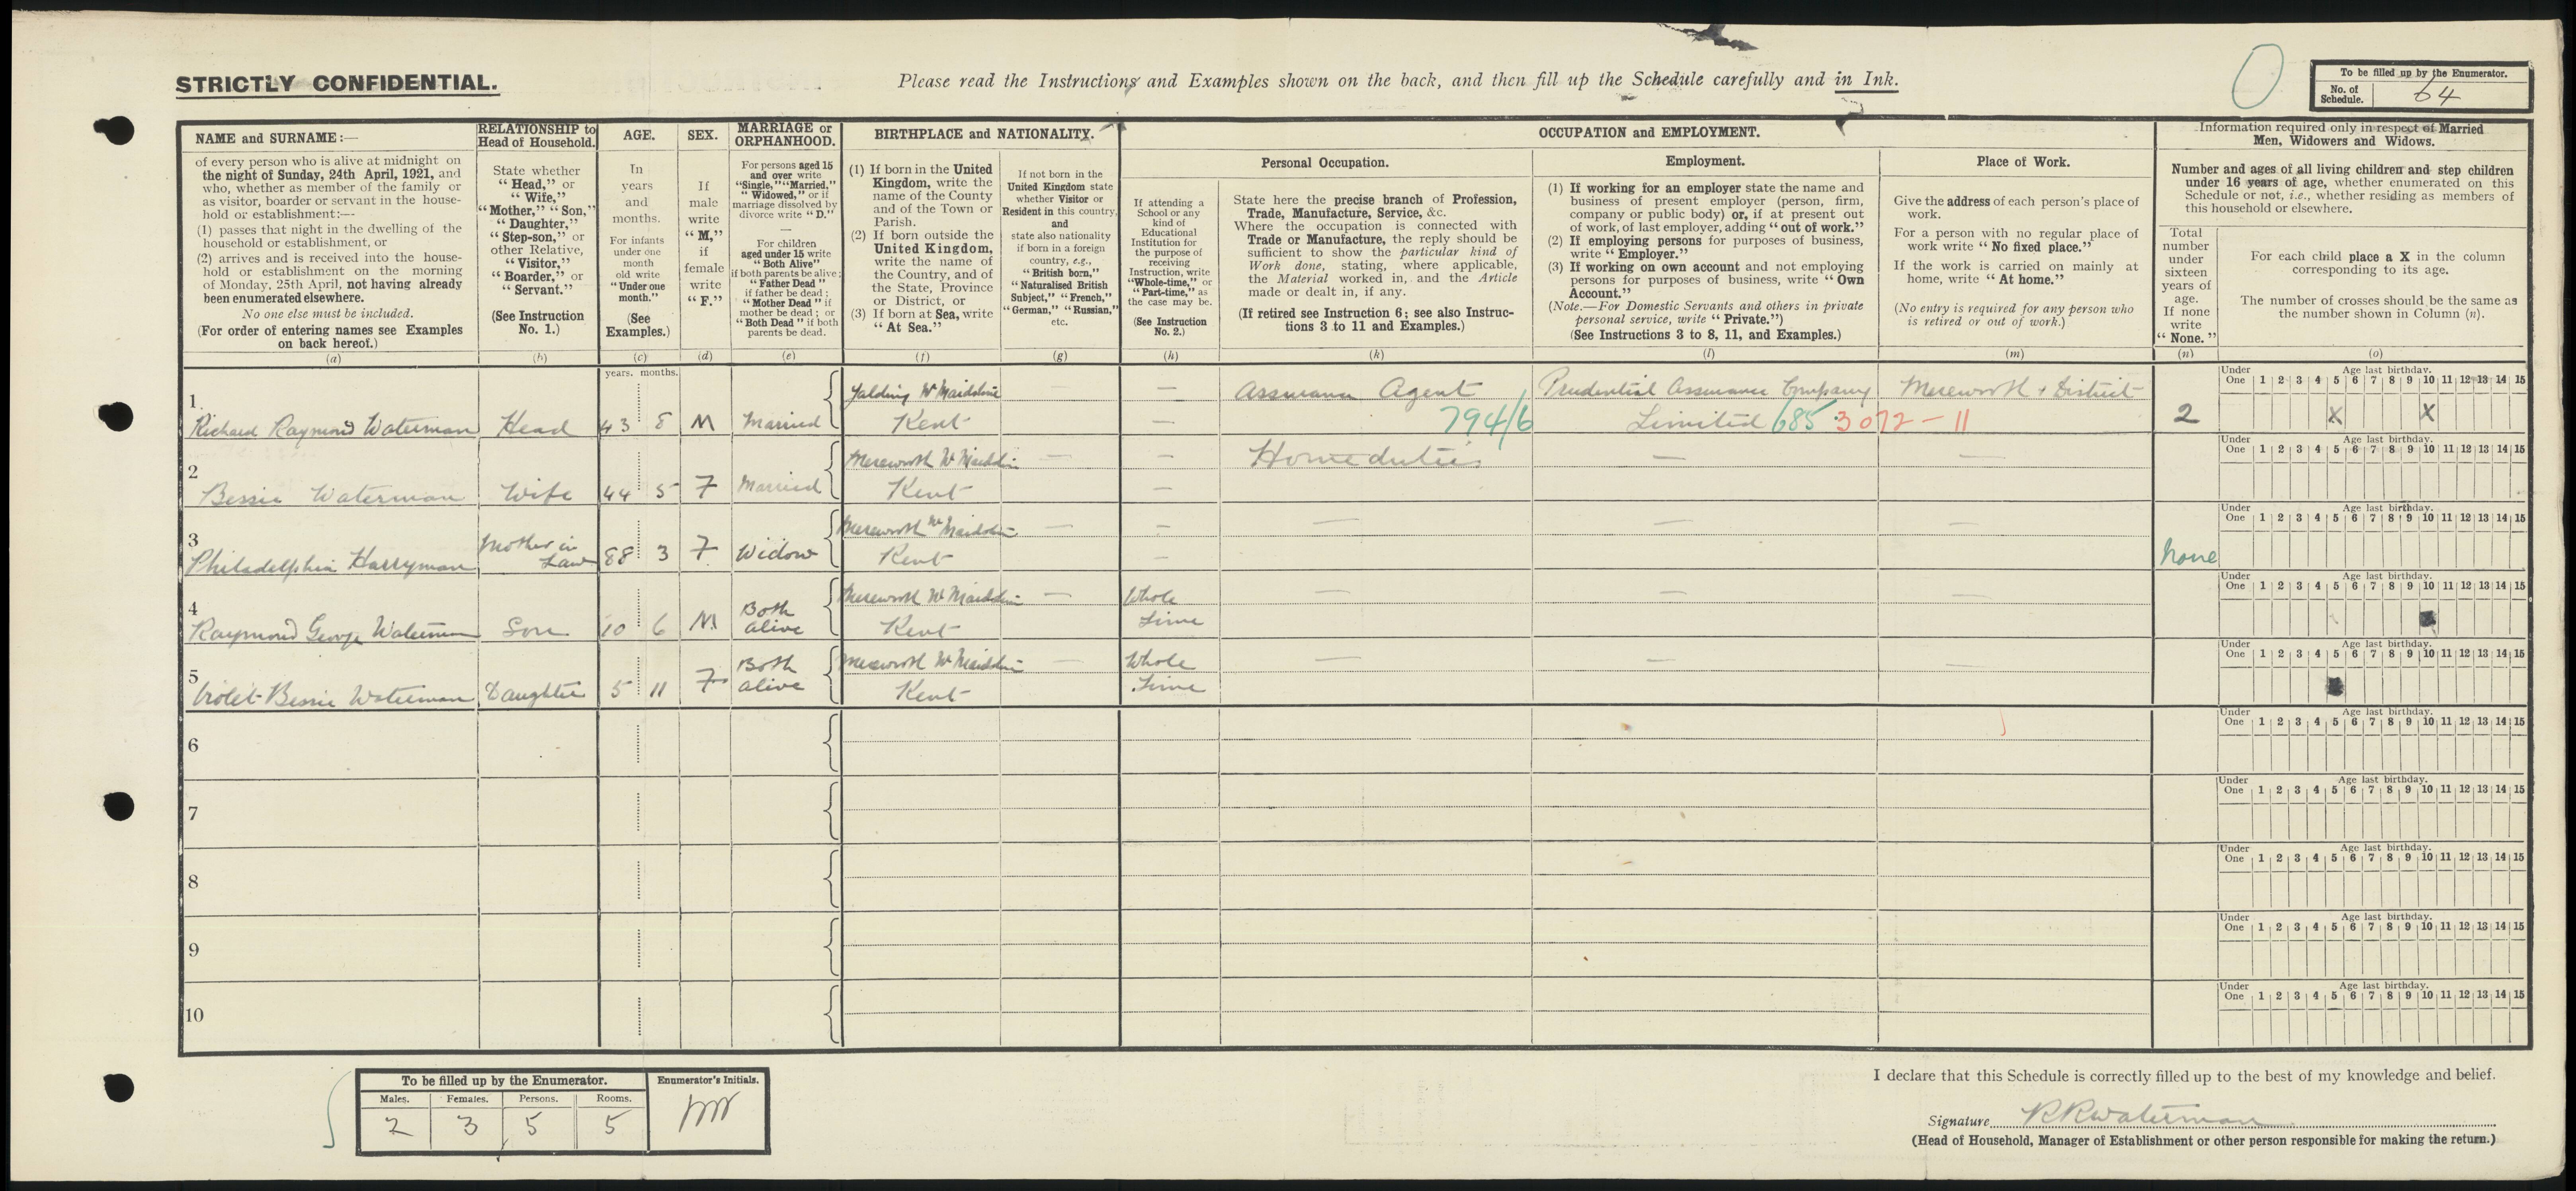 STRICTLY CONFIDENTIAL.
Please read the Instructions and Examples shown on the back, and then fill up the Schedule carefully and in Ink.
To be filled up by the Enumerator.
No. of Schedule. 64
NAME and SURNAME:—
of every person who is alive at midnight on
the night of Sunday, 24th April, 1921, and
who, whether as member of the family or
as visitor, boarder or servant in the house-
hold or establishment:—
(1) passes that night in the dwelling of the
household or establishment, or
(2) arrives and is received into the house-
hold or establishment on the morning
of Monday, 25th April, not having already
been enumerated elsewhere.
No one else must be included.
(For order of entering names see Examples
on back hereof.)
(a)
RELATIONSHIP to
Head of Household.
State whether
"Head," or
"Wife,"
"Mother," "Son,"
"Daughter,"
"Step-son," or
other Relative,
"Visitor,"
"Boarder," or
"Servant."
(See Instruction
No. 1.)
(b)
AGE.
In
years
and
months.
For infants
under one
month
old write
"Under one
month."
(See
Examples.)
(c)
SEX.
If
male
write
"M,"
if
female
write
"F."
(d)
MARRIAGE or
ORPHANHOOD.
For persons aged 15
and over write
"Single," "Married,"
"Widowed," or if
marriage dissolved by
divorce write "D."
—
For children
aged under 15 write
"Both Alive"
if both parents be alive;
"Father Dead"
if father be dead;
"Mother Dead" if
mother be dead; or
"Both Dead" if both
parents be dead.
(e)
BIRTHPLACE and NATIONALITY.
(1) If born in the United
Kingdom, write the
name of the County
and of the Town or
Parish.
(2) If born outside the
United Kingdom,
write the name of
the Country, and of
the State, Province
or District, or
(3) If born at Sea, write
"At Sea."
(f)
If not born in the
United Kingdom state
whether Visitor or
Resident in this country,
and
state also nationality
if born in a foreign
country, e.g.,
"British born,"
"Naturalised British
Subject," "French,"
"German," "Russian,"
etc.
(g)
OCCUPATION and EMPLOYMENT.
If attending a
School or any
kind of
Educational
Institution for
the purpose of
receiving
Instruction, write
"Whole-time," or
"Part-time," as
the case may be.
(See Instruction
No. 2.)
(h)
Personal Occupation.
State here the precise branch of Profession,
Trade, Manufacture, Service, &c.
Where the occupation is connected with
Trade or Manufacture, the reply should be
sufficient to show the particular kind of
Work done, stating, where applicable,
the Material worked in, and the Article
made or dealt in, if any.
(If retired see Instruction 6; see also Instruc-
tions 3 to 11 and Examples.)
(k)
Employment.
(1) If working for an employer state the name and
business of present employer (person, firm,
company or public body) or, if at present out
of work, of last employer, adding "out of work."
(2) If employing persons for purposes of business,
write "Employer."
(3) If working on own account and not employing
persons for purposes of business, write "Own
Account."
(Note.—For Domestic Servants and others in private
personal service, write "Private.")
(See Instructions 3 to 8, 11, and Examples.)
(l)
Place of Work.
Give the address of each person's place of
work.
For a person with no regular place of
work write "No fixed place."
If the work is carried on mainly at
home, write "At home."
(No entry is required for any person who
is retired or out of work.)
(m)
Information required only in respect of Married
Men, Widowers and Widows.
Number and ages of all living children and step children
under 16 years of age, whether enumerated on this
Schedule or not, i.e., whether residing as members of
this household or elsewhere.
Total
number
under
sixteen
years of
age.
If none
write
"None."
(n)
For each child place a X in the column
corresponding to its age.
The number of crosses should be the same as
the number shown in Column (n).
(o)
years. months.
1 Richard Raymond Waterman Head 43 8 M Married Yalding Nr Maidstone Kent — — Assurance Agent 794/6 Prudential Assurance Company Limited 685 3072-11 Mereworth & District 2 X X
Under One 1 2 3 4 5 6 7 8 9 10 11 12 13 14 15
Age last birthday.
2 Bessie Waterman Wife 44 5 F Married Mereworth Nr Maidstone Kent — — Home duties — —
Under One 1 2 3 4 5 6 7 8 9 10 11 12 13 14 15
Age last birthday.
3 Philadelphia Harryman Mother in Law 88 3 F Widow Mereworth Nr Maidstone Kent — — — — — None
Under One 1 2 3 4 5 6 7 8 9 10 11 12 13 14 15
Age last birthday.
4 Raymond George Waterman Son 10 6 M Both alive Mereworth Nr Maidstone Kent — Whole Time — — —
Under One 1 2 3 4 5 6 7 8 9 10 11 12 13 14 15
Age last birthday.
5 Violet Bessie Waterman Daughter 5 11 F Both alive Mereworth Nr Maidstone Kent — Whole Time — — —
Under One 1 2 3 4 5 6 7 8 9 10 11 12 13 14 15
Age last birthday.
6
Under One 1 2 3 4 5 6 7 8 9 10 11 12 13 14 15
Age last birthday.
7
Under One 1 2 3 4 5 6 7 8 9 10 11 12 13 14 15
Age last birthday.
8
Under One 1 2 3 4 5 6 7 8 9 10 11 12 13 14 15
Age last birthday.
9
Under One 1 2 3 4 5 6 7 8 9 10 11 12 13 14 15
Age last birthday.
10
Under One 1 2 3 4 5 6 7 8 9 10 11 12 13 14 15
Age last birthday.
To be filled up by the Enumerator.
Enumerator's Initials.
Males. Females. Persons. Rooms.
2 3 5 5
I declare that this Schedule is correctly filled up to the best of my knowledge and belief.
Signature R R Waterman
(Head of Household, Manager of Establishment or other person responsible for making the return.)